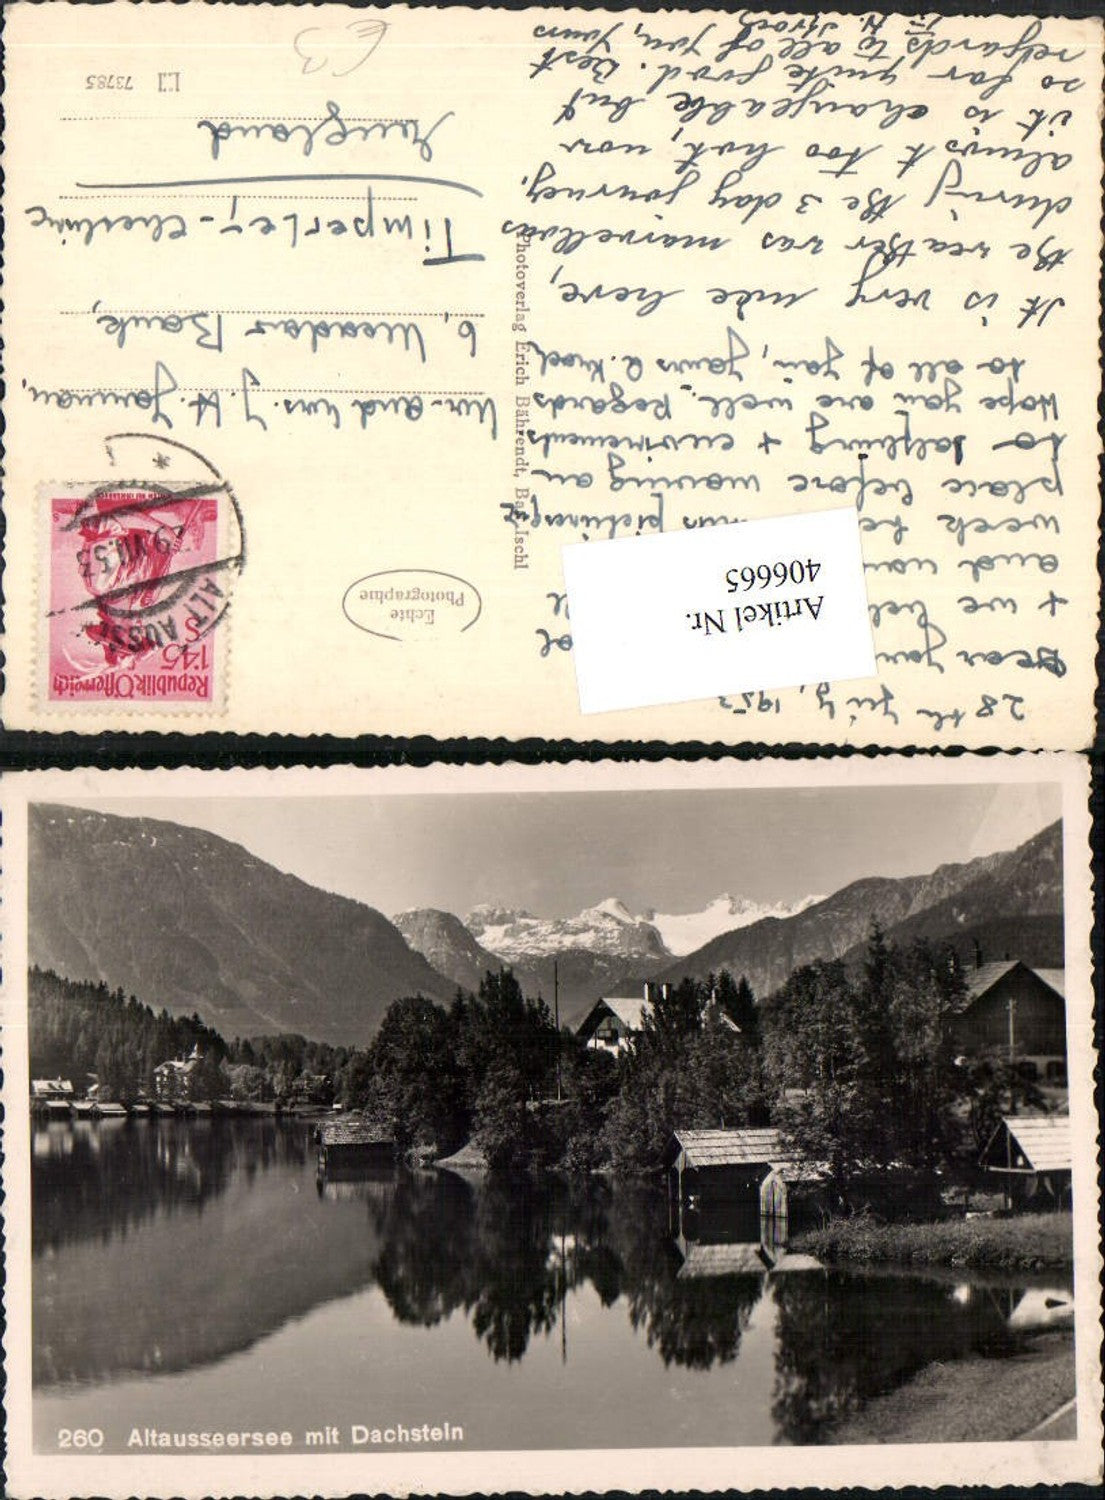 28th July, 1953
Dear Jan
+ we
and
week
place before moving on
to Salzburg + environments
Hope you are well. Regards
to all of you, yours
It is very nice here,
the weather was marvellous
during the 3 day journey,
almost too hot, now
it is changeable but
so far quite good. Best
regards to all of you, yours
H.
Artikel Nr.
406665
Photoverlag Erich Bährendt, Bad Ischl
Echte
Photographie
Republik Österreich
1'45
S
ALT AUSS
29.VII.53
Mr. and Mrs. J. H. Janman,
6, Meadow Bank,
Timperley - Cheshire
England
73785
260 Altausseersee mit Dachstein